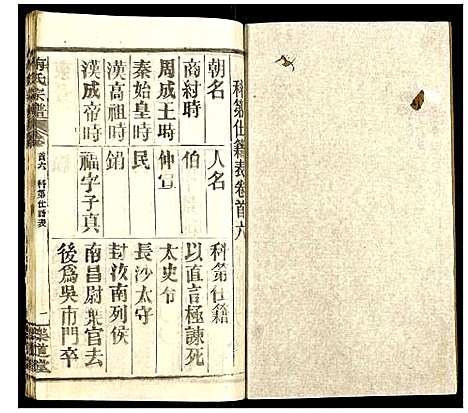 科第仕籍表卷首六
朝名 人名 科第仕籍
商紂時 伯 以直言極諫死
周成王時 仲宣 太史令
秦始皇時 民 長沙太守
漢高祖時 鋗 封汝南列侯
漢成帝時 福字子真 南昌尉棄官去
後為吳市門卒
梅氏宗譜
首六 科第仕籍表
一
樂道堂